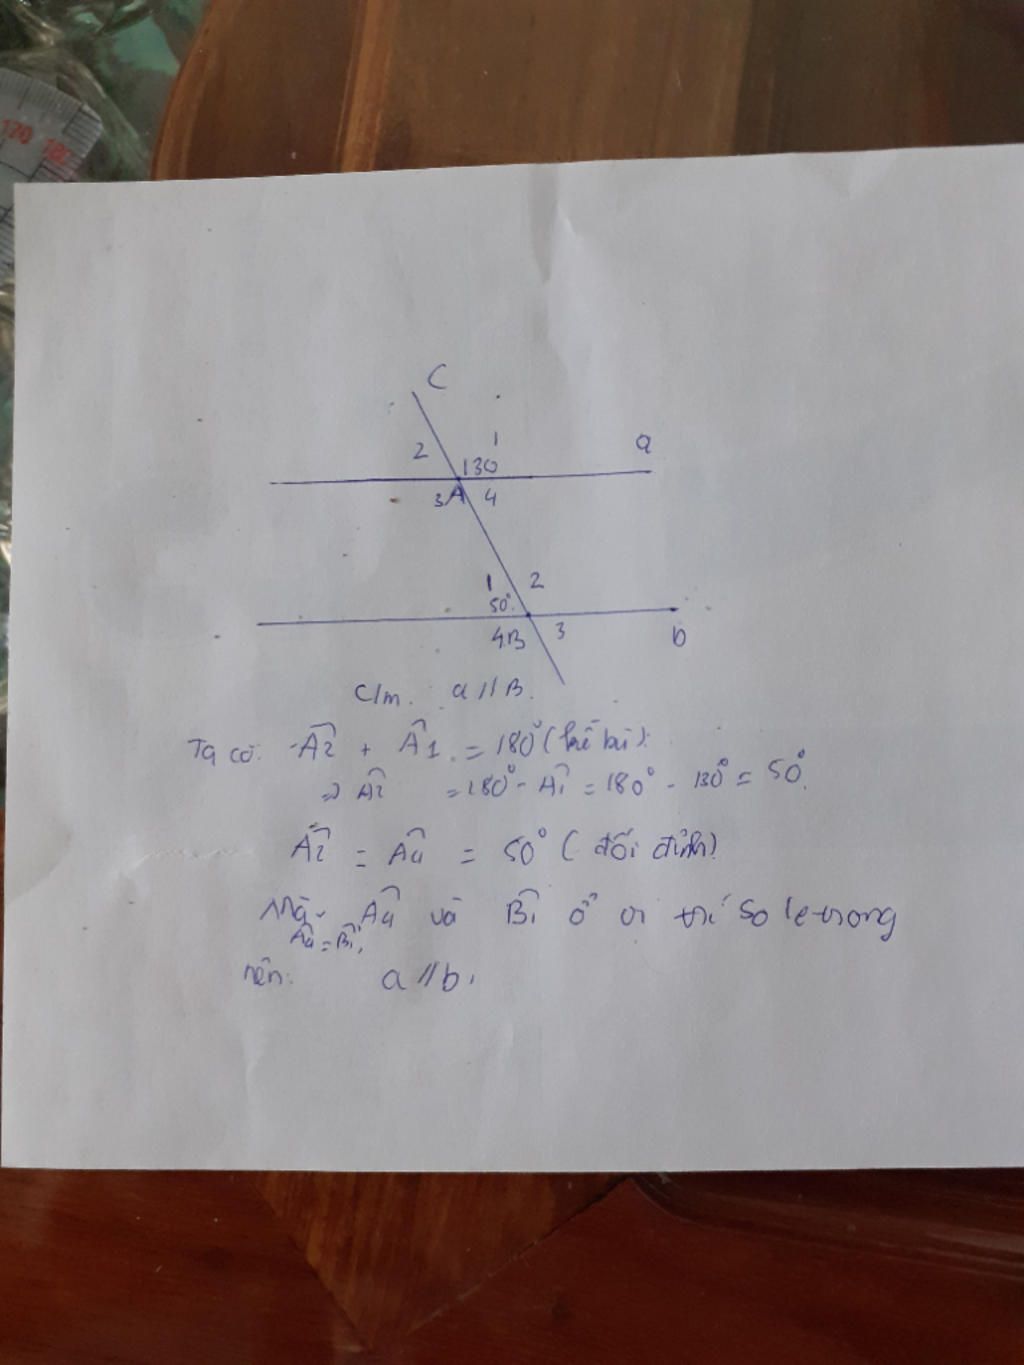 170 180
C
1
2
a
130
3 A 4
1 2
50°
4 B 3
b
C/m. a // B.
Ta có: Â2 + Â1 = 180° (kề bù)
=> Â2 = 180° - Â1 = 180° - 130° = 50°.
Â2 = Â4 = 50° (đối đỉnh)
Mà Â4 và B̂1 ở vị trí so le trong
Â4 = B̂1
nên: a // b.